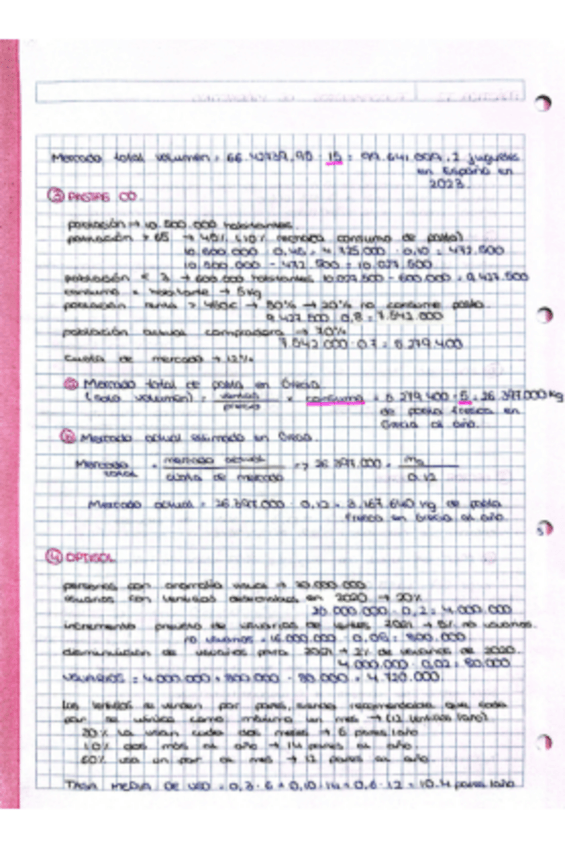 Mercado total volumen = 66.42739,90 · 15 = 99.641.009,2 juguetes
en España en
2023.
③ PASTAS CO.
población → 10.500.000 habitantes
población > 65 → 45% (10% rechaza consumo de pasta)
10.500.000 · 0,45 = 4.725.000 · 0,10 = 472.500
10.500.000 - 472.500 = 10.027.500
población < 3 → 600.000 habitantes 10.027.500 - 600.000 = 9.427.500
consumo x habitante → 5kg
población renta > 450€ → 80% → 20% no consume pasta.
9.427.500 · 0,8 = 7.542.000
población actual compradora → 70%
7.542.000 · 0,7 = 5.279.400
cuota de mercado → 12%
ⓐ Mercado total de pasta en Grecia.
(solo volumen) = ventas / precio x consumo = 5.279.400 · 5 = 26.397.000 Kg
de pasta fresca en
Grecia al año.
ⓑ Mercado actual estimado en Grecia.
Mercado total = mercado actual / cuota de mercado => 26.397.000 = ma / 0,12
Mercado actual = 26.397.000 · 0,12 = 3.167.640 kg de pasta
fresca en Grecia al año.
5
④ OPTISOL
personas con anomalía visual → 20.000.000
usuarios con lentillas desechables en 2020 → 20%
20.000.000 · 0,2 = 4.000.000
incremento previsto de usuarios de lentes 2021 → 5% no usuarios.
no usuarios = 16.000.000 · 0,05 = 800.000
disminución de usuarios para 2021 → 2% de usuarios de 2020.
4.000.000 · 0,02 = 80.000
USUARIOS = 4.000.000 + 800.000 - 80.000 = 4.720.000
Las lentillas se venden por pares, siendo recomendable que cada
par se utilice como máximo un mes → (12 lentillas/año).
30% la usan cada dos meses → 6 pares/año
10% dos más al año → 14 pares al año.
60% usa un par al mes → 12 pares al año.
TASA MEDIA DE USO = 0,3 · 6 + 0,10 · 14 + 0,6 · 12 = 10,4 pares/año